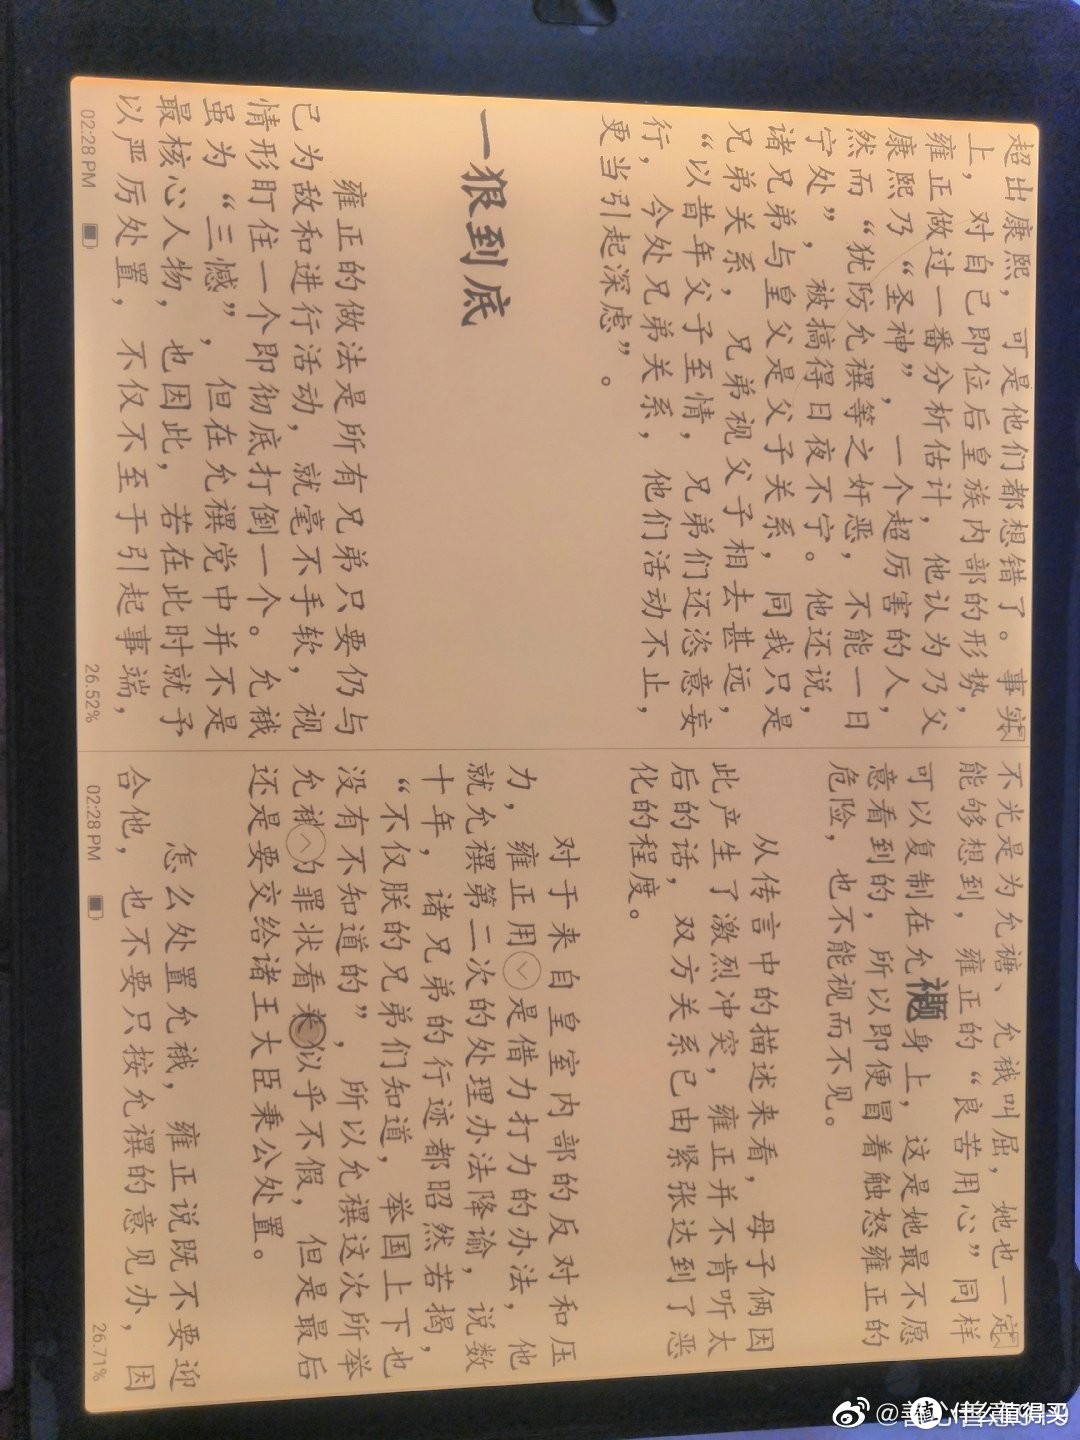 超出康熙，可是他们都想错了。事实
上，对自己即位后皇族内部的形势，
雍正做过一番分析估计，他认为乃父
康熙乃“圣神”，一个超厉害的人，
然而“犹防允禩等之奸恶，不能一日
宁处”，被搞得日夜不宁。他还说，
诸兄弟与皇父是父子关系，同我只是
兄弟关系，兄弟视父子相去甚远，
“以昔年父子至情，兄弟们还恣意妄
行，今处兄弟关系，他们活动不止，
更当引起深虑”。
一狠到底
雍正的做法是所有兄弟只要仍与
己为敌和进行活动，就毫不手软，视
情形盯住一个即彻底打倒一个。允䄉
虽为“三憾”，但在允禩党中并不是
最核心人物，也因此，若在此时就予
以严厉处置，不仅不至于引起事端，
02:28 PM
26.52%
不光是为允禟、允䄉叫屈，她也一定
能够想到，雍正的“良苦用心”同样
可以复制在允禵身上，这是她最不愿
意看到的，所以即便冒着触怒雍正的
危险，也不能视而不见。
从传言中的描述来看，母子俩因
此产生了激烈冲突，雍正并不肯听太
后的话，双方关系已由紧张达到了恶
化的程度。
对于来自皇室内部的反对和压
力，雍正用 是借力打力的办法，他
就允禩第二次的处理办法降谕，说数
十年，诸兄弟的行迹都昭然若揭，
“不仅朕的兄弟们知道，举国上下也
没有不知道的”，所以允禩这次所举
允 为罪状看来似乎不假，但是最后
还是要交给诸王大臣秉公处置。
怎么处置允䄉，雍正说既不要迎
合他，也不要只按允禩的意见办，因
02:28 PM
26.71%
值 什么值得买